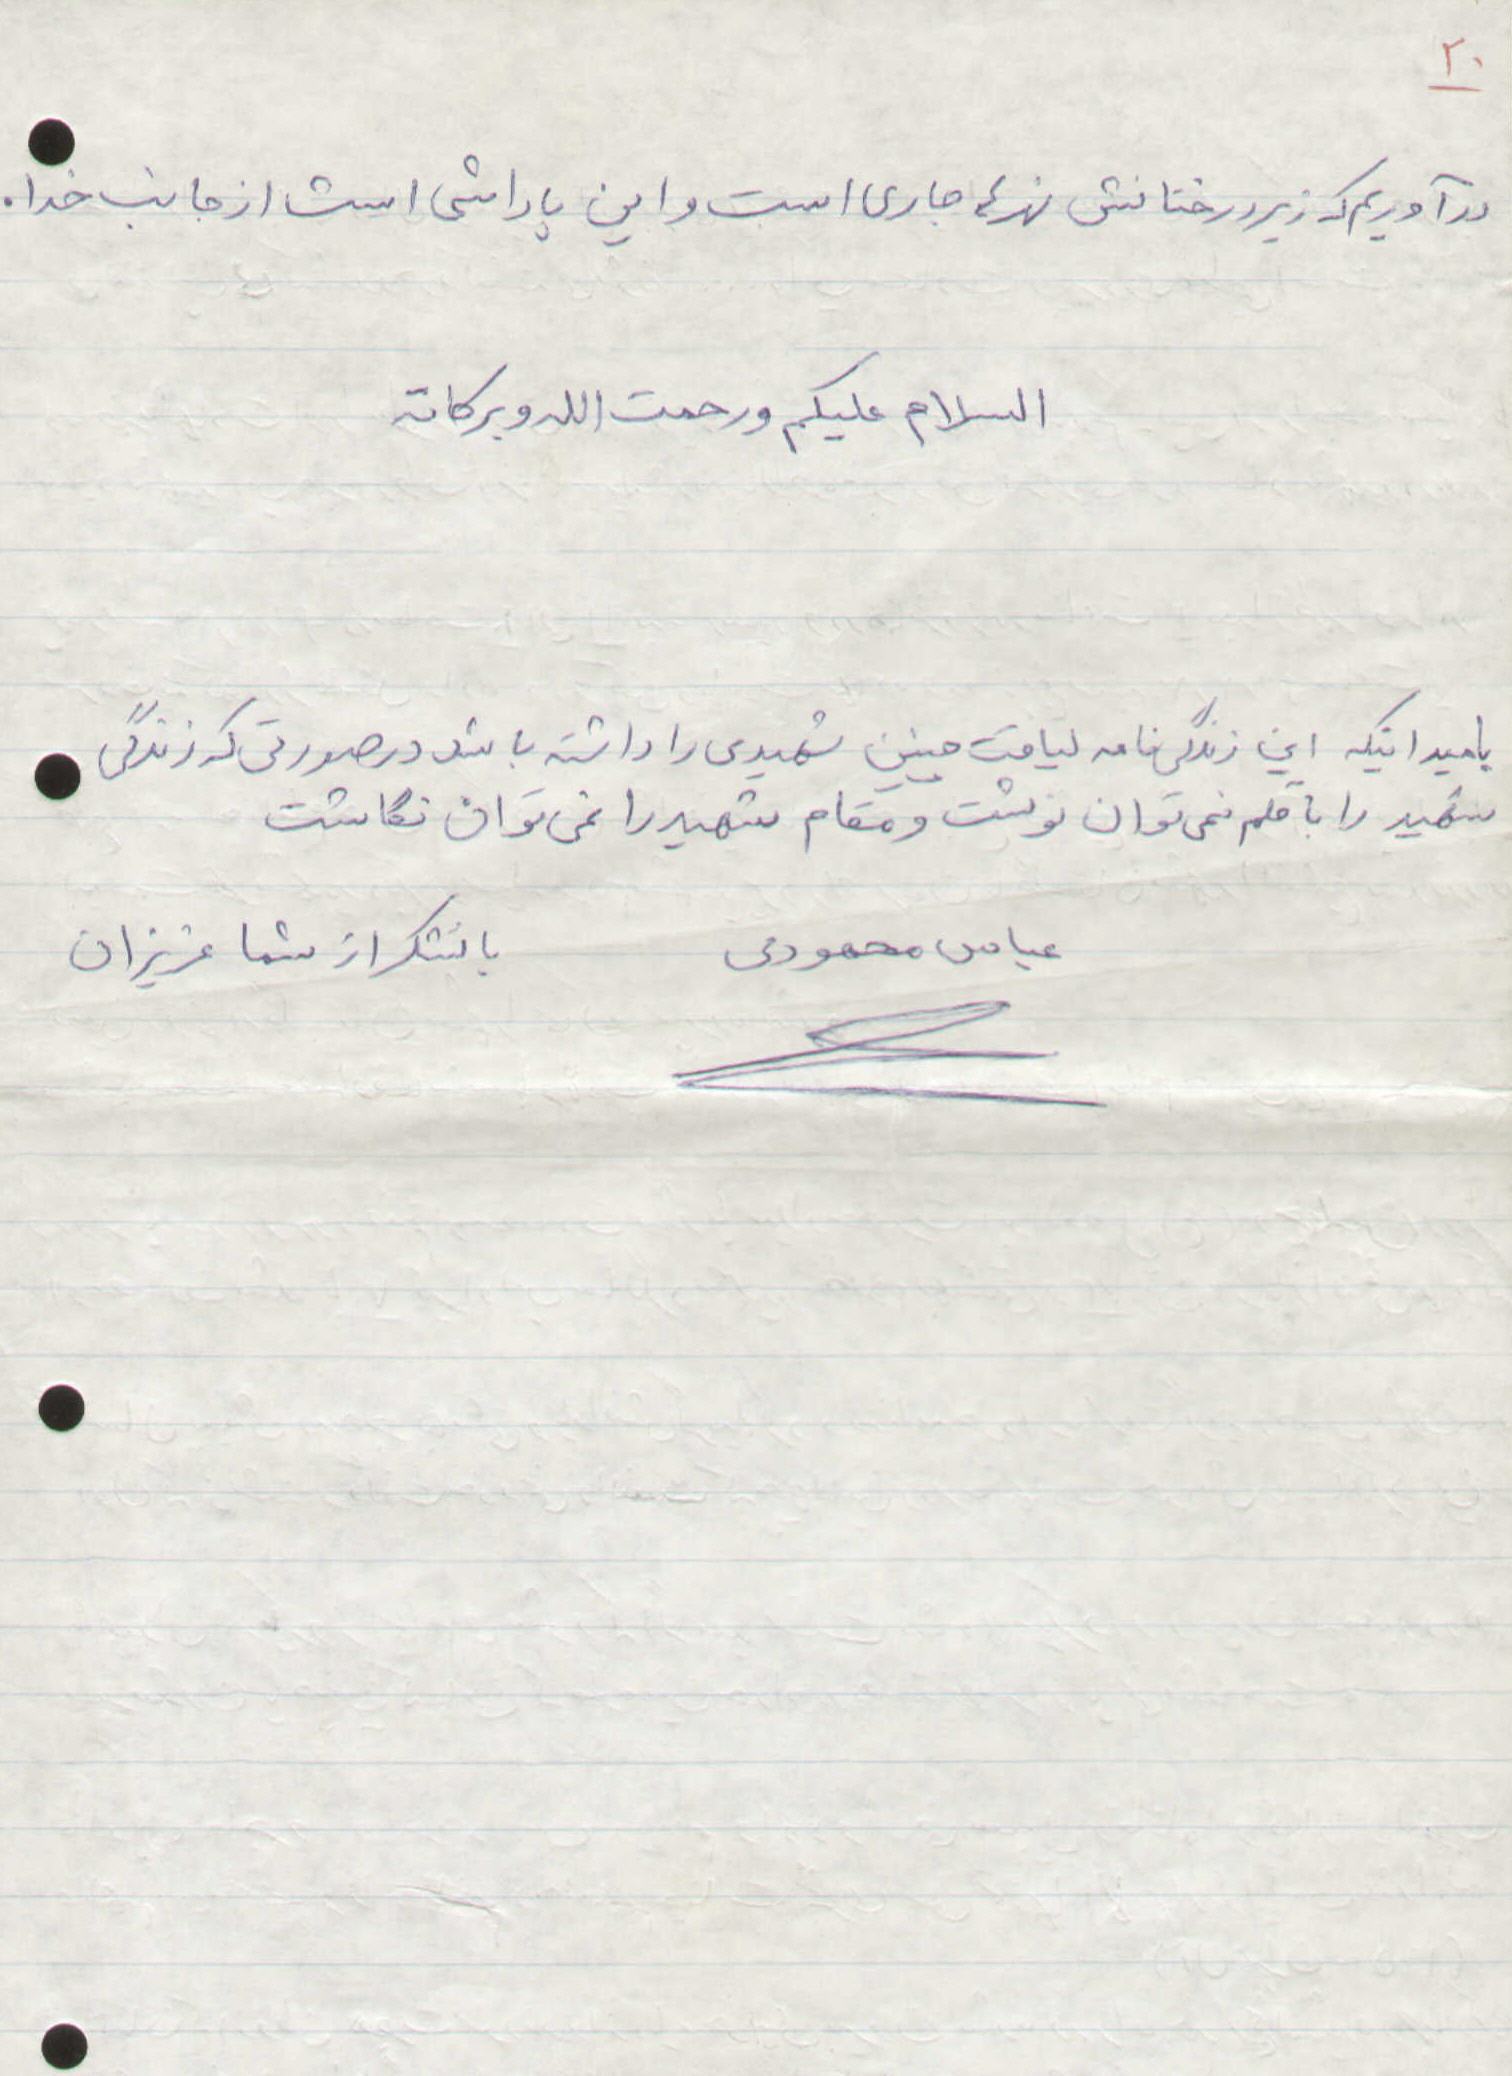 ۲۰
درآوریم که زیر درختانش نهرها جاری است و این پاداشی است از جانب خدا.
السلام علیکم و رحمت الله و برکاته
بامید اینکه این زندگی نامه لیاقت چنین شهیدی را داشته باشد در صورتی که زندگی
شهید را با قلم نمی توان نوشت و مقام شهید را نمی توان نگاشت
عباس محمودی
با تشکر از شما عزیزان